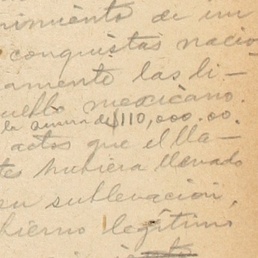 nimiento de un
conquistas nacio-
amente las li-
pueblo mexicano.
la suma de $110,000.00.
actos que el lla-
tes hubiera llevado
en sublevación,
bierno legítimo